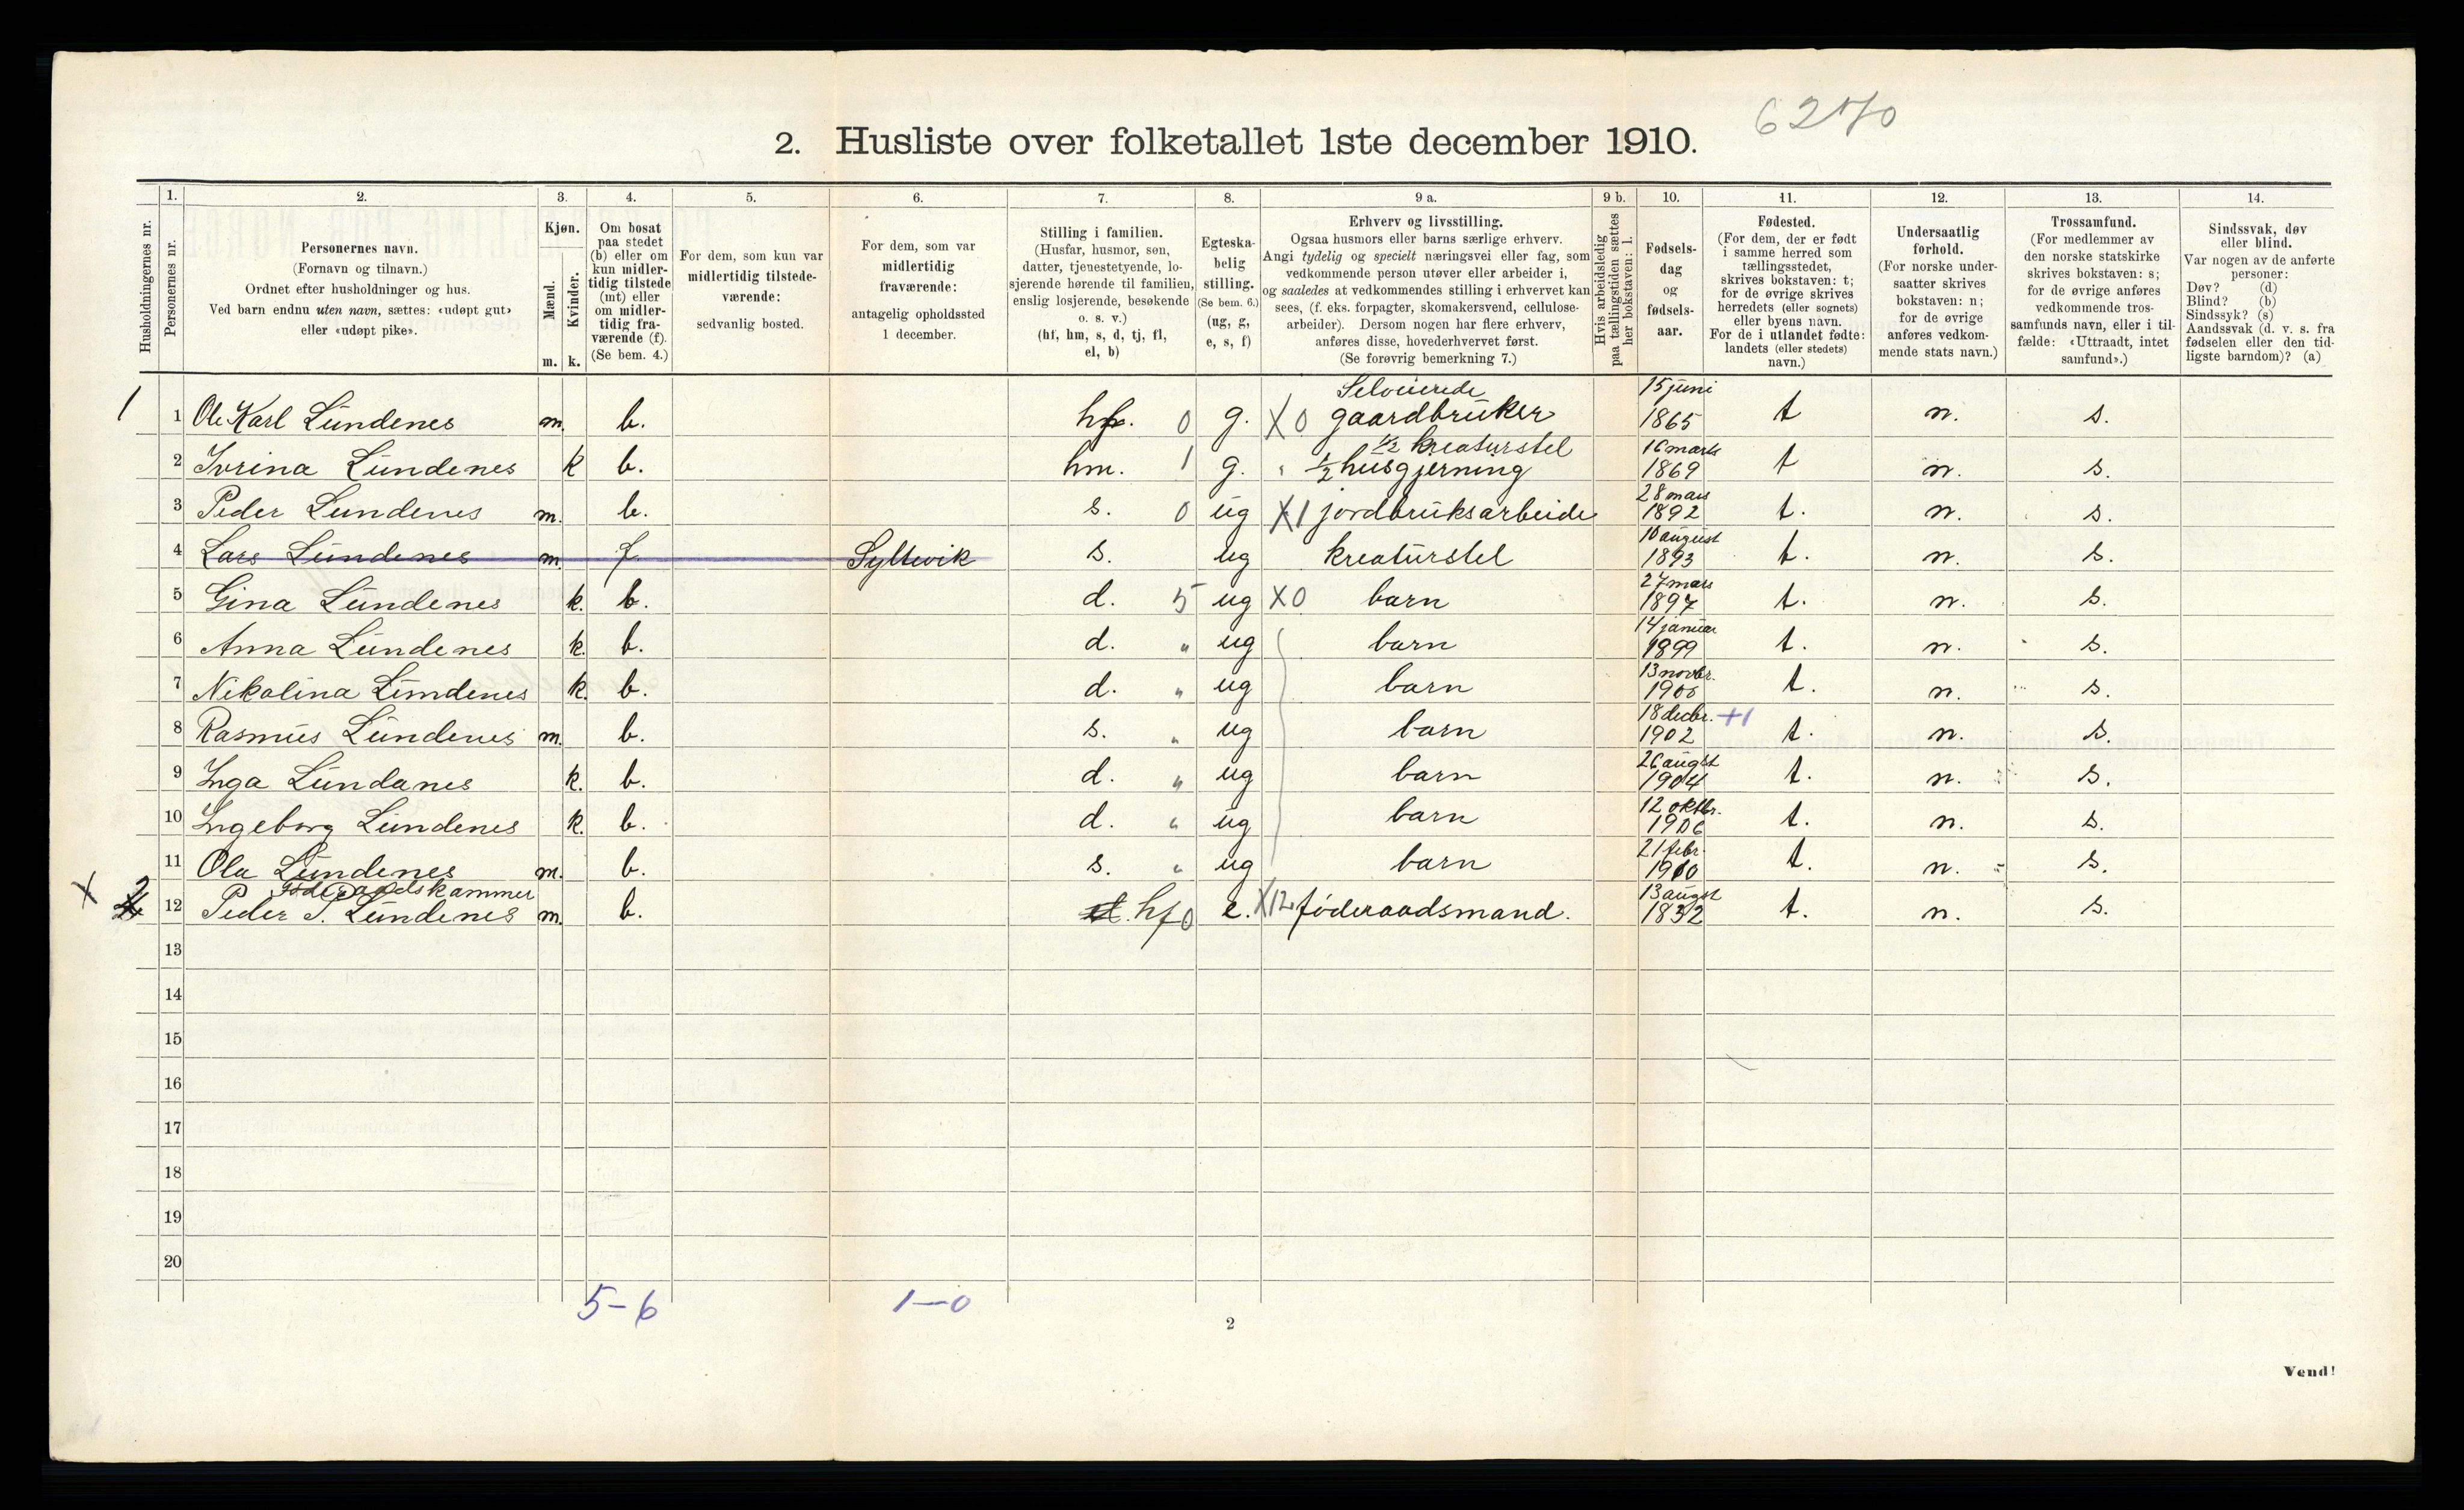 6270
2. Husliste over folketallet 1ste december 1910.
Husholdningernes nr.
1.
Personernes nr.
2.
Personernes navn.
(Fornavn og tilnavn.)
Ordnet efter husholdninger og hus.
Ved barn endnu uten navn, sættes: «udøpt gut»
eller «udøpt pike».
3.
Kjøn.
Mænd.
Kvinder.
m. k.
4.
Om bosat
paa stedet
(b) eller om
kun midler-
tidig tilstede
(mt) eller
om midler-
tidig fra-
værende (f).
(Se bem. 4.)
5.
For dem, som kun var
midlertidig tilstede-
værende:
sedvanlig bosted.
6.
For dem, som var
midlertidig
fraværende:
antagelig opholdssted
1 december.
7.
Stilling i familien.
(Husfar, husmor, søn,
datter, tjenestetyende, lo-
sjerende hørende til familien,
enslig losjerende, besøkende
o. s. v.)
(hf, hm, s, d, tj, fl,
el, b)
8.
Egteska-
belig
stilling.
(Se bem. 6.)
(ug, g,
e, s, f)
9 a.
Erhverv og livsstilling.
Ogsaa husmors eller barns særlige erhverv.
Angi tydelig og specielt næringsvei eller fag, som
vedkommende person utøver eller arbeider i,
og saaledes at vedkommendes stilling i erhvervet kan
sees, (f. eks. forpagter, skomakersvend, cellulose-
arbeider). Dersom nogen har flere erhverv,
anføres disse, hovederhvervet først.
(Se forøvrig bemerkning 7.)
9 b.
Hvis arbeidsledig
paa tællingstiden sættes
her bokstaven: l.
10.
Fødsels-
dag
og
fødsels-
aar.
11.
Fødested.
(For dem, der er født
i samme herred som
tællingsstedet,
skrives bokstaven: t;
for de øvrige skrives
herredets (eller sognets)
eller byens navn.
For de i utlandet fødte:
landets (eller stedets)
navn.)
12.
Undersaatlig
forhold.
(For norske under-
saatter skrives
bokstaven: n;
for de øvrige
anføres vedkom-
mende stats navn.)
13.
Trossamfund.
(For medlemmer av
den norske statskirke
skrives bokstaven: s;
for de øvrige anføres
vedkommende tros-
samfunds navn, eller i til-
fælde: «Uttraadt, intet
samfund».)
14.
Sindssvak, døv
eller blind.
Var nogen av de anførte
personer:
Døv? (d)
Blind? (b)
Sindssyk? (s)
Aandssvak (d. v. s. fra
fødselen eller den tid-
ligste barndom)? (a)
Selveierede 15 juni
1 1 Ole Karl Lundenes m. b. hf. 0 g. X0 gaardbruker 1865 t n. s.
1/2 kreaturstel 16 marts
2 Ivrina Lundenes k b. hm. 1 g. " 1/2 husgjerning 1869 t n. s.
28 mars
3 Peder Lundenes m. b. s. 0 ug X1 jordbruksarbeide 1892 t. n. s.
10 august
4 Lars Lundenes m. f Syltevik s. ug kreaturstel 1893 t. n. s.
27 mars
5 Gina Lundenes k. b. d. 5 ug X0 barn 1897 t. n. s.
14 januar
6 Anna Lundenes k. b. d. " ug barn 1899 t. n. s.
13 novbr.
7 Nikolina Lundenes k. b. d. " ug barn 1900 t. n. s.
18 decbr. +1
8 Rasmus Lundenes m. b. s. " ug barn 1902 t. n. s.
26 augst
9 Inga Lundanes k. b. d. " ug barn 1904 t. n. s.
12 oktbr.
10 Ingeborg Lundenes k. b. d. " ug barn 1906 t. n. s.
21 febr.
11 Ola Lundenes m. b. s. " ug barn 1910 t. n. s.
Föderaadskammer 13 augst
X 2 12 Peder S. Lundenes m. b. hf 0 e. X12 föderaadsmand. 1832 t. n. s.
13
14
15
16
17
18
19
20
5-6 1-0
2
Vend!